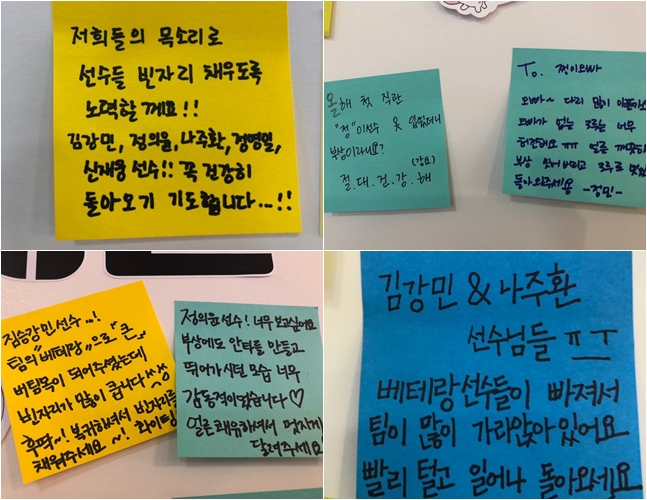 저희들의 목소리로
선수들 빈자리 채우도록
노력할께요!!
김강민, 정의윤, 나주환, 정영일,
신재웅 선수!! 꼭 건강히
돌아오기 기도합니다...!!
올해 첫 직관
"정"이선수 옷 입었더니
부상이라니요?
(강요)
절.대.건.강.해
To. 쩡이오빠
오빠~ 다리 많이 아플까요
오빠가 없는 3루는 너무
허전해요 ㅠㅠ 얼른 깨끗하
부상 씻어버리고 3루로 멋있
돌아와주세용 -정민-
김강민선수...!
팀의 "베테랑"으로 "큰"
버팀목이 되어주셨는데
빈자리가 많이 큽니다
후딱~! 복귀하셔서 빈자리를
채워주세요~! 화이팅
정의윤선수! 너무 보고싶어요
부상에도 안타를 만들고
뛰어가시던 모습 너무
감동적이었습니다♡
얼른 쾌유하셔서 멋지게
달려주세요!
김강민 & 나주환
선수님들 ㅠㅜ
베테랑선수들이 빠져서
팀이 많이 가라앉아있어요
빨리 털고 일어나 돌아오세요